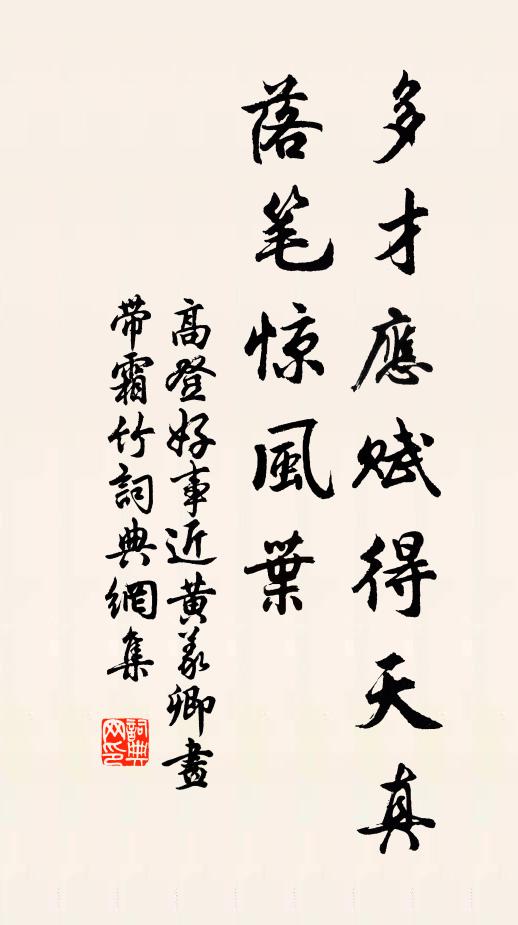 多才應賦得天真
落笔惊風葉
高登好事近黄義卿畫
带霜竹詞典網集
詞典
网印